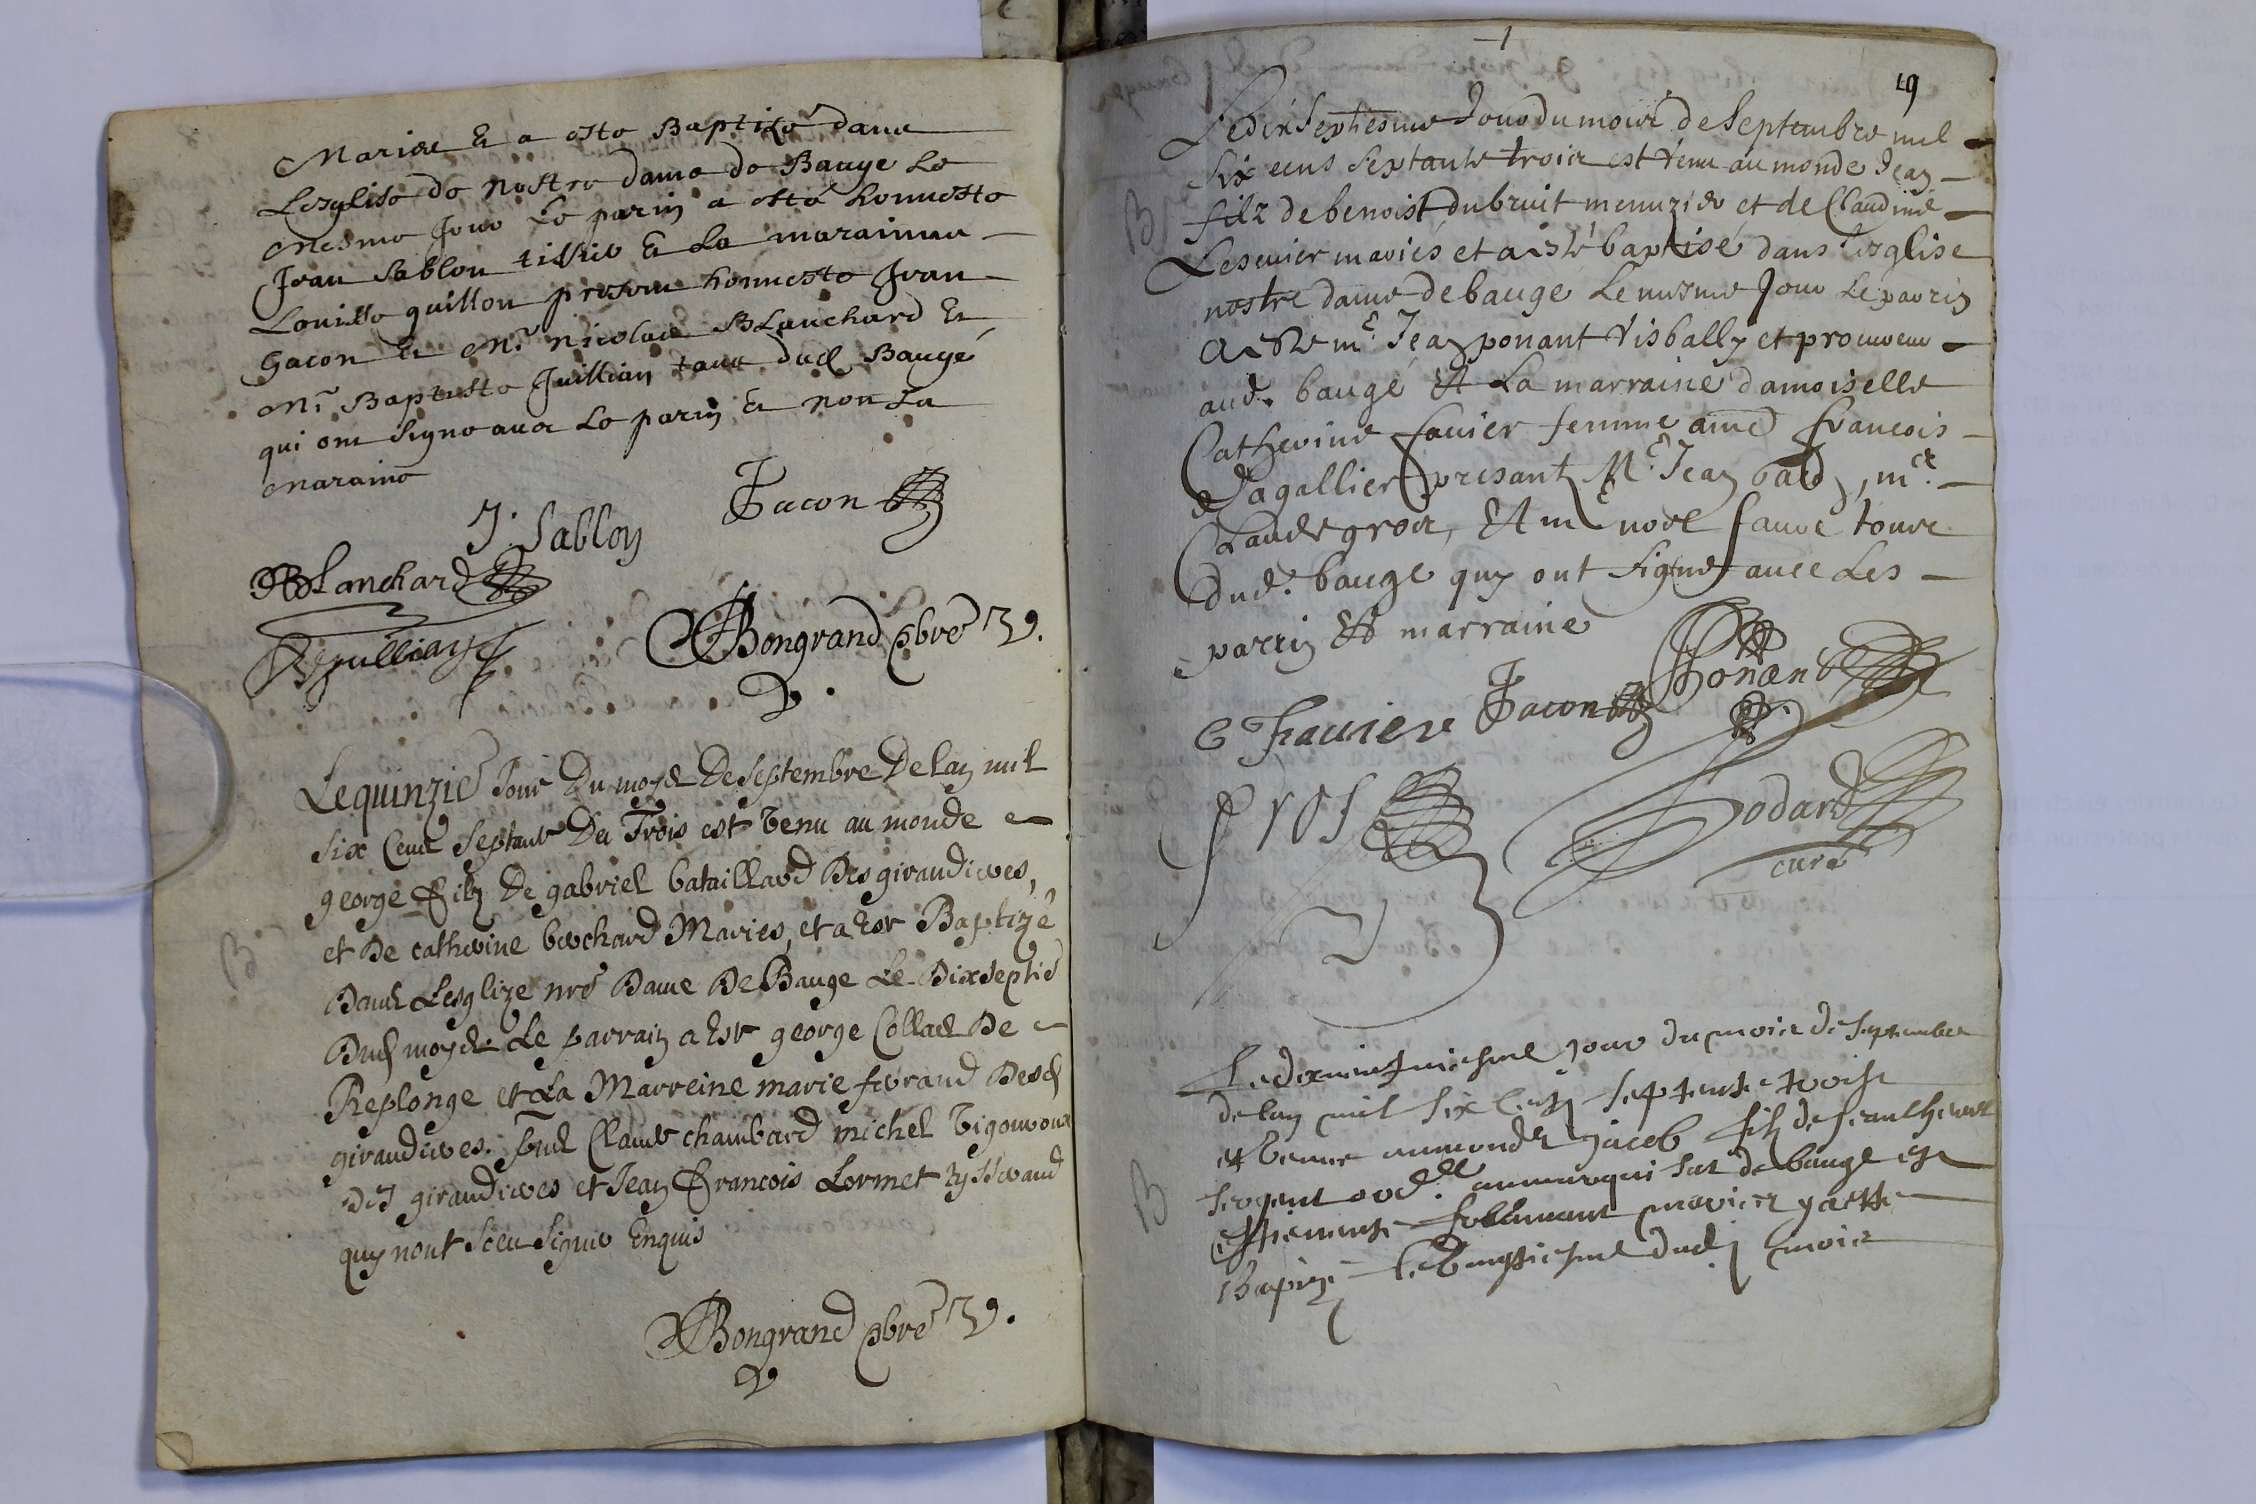 Maries Et a esté Baptizé dans
Lesglise de nostre dame de Bauge Le
mesme Jour Le parin a esté honneste
Jean Sablon tissier Et La maraine
Louise guillon presens honneste Jean
Gacon Et Mr. Nicolas Blanchard Et
Mr. Baptiste Jullian tous dud Baugé
qui ont signe avec Le parin Et non La
maraine
J. Sablon
Jacon
Blanchard
B Jullian
Bongrand pbre
Le quinzie Jour Du moys De Septembre De Lan mil
Six Cens Septante Et Trois est Venu au monde
george Filz De gabriel bataillard Des giraudieres,
et De catherine bochard Maries, et a Este Baptizé
Dans Lesglize nre Dame De Bauge Le Dixseptie
Dud moys Le Parrain a Este george Collas De
Replonge et La Marreine marie ferrand Desd
giraudieres. Claude chambard michel Vigouroux
Desd giraudieres et Jean Francois Lormet
quy nont Sceu Signer Enquis
Bongrand pbre
19
Le dix Septiesme Jour du mois de Septembre mil
Six cens Septante trois est Venu au monde Jean
filz de benoist dubruit menuzier et de Claudine
Lesuier mariés et a esté baptisé dans Lesglise
nostre dame de bauge Le mesme Jour Le parrin
a este me Jean ponant Visbally et procureur
aud. baugé Et La marraine damoiselle
Catherine favier femme a francois
Dagallier presant Me Jean bard, me.
Claude gros, Et me noel favre tous
dud. bauge quy ont signe avec Les
parrin Et marraine
B
C Faviere
Jacon
Ponant
gros
Godard
curé
Le dixneufviesme jour du mois de Septembre
de lan mil Six Cens Septente trois
est venu au monde Jacob filz de
Sergent aud. au marquisat de bauge et
maries y a este
Bapizé Le Vingtiesme dud mois
B
B